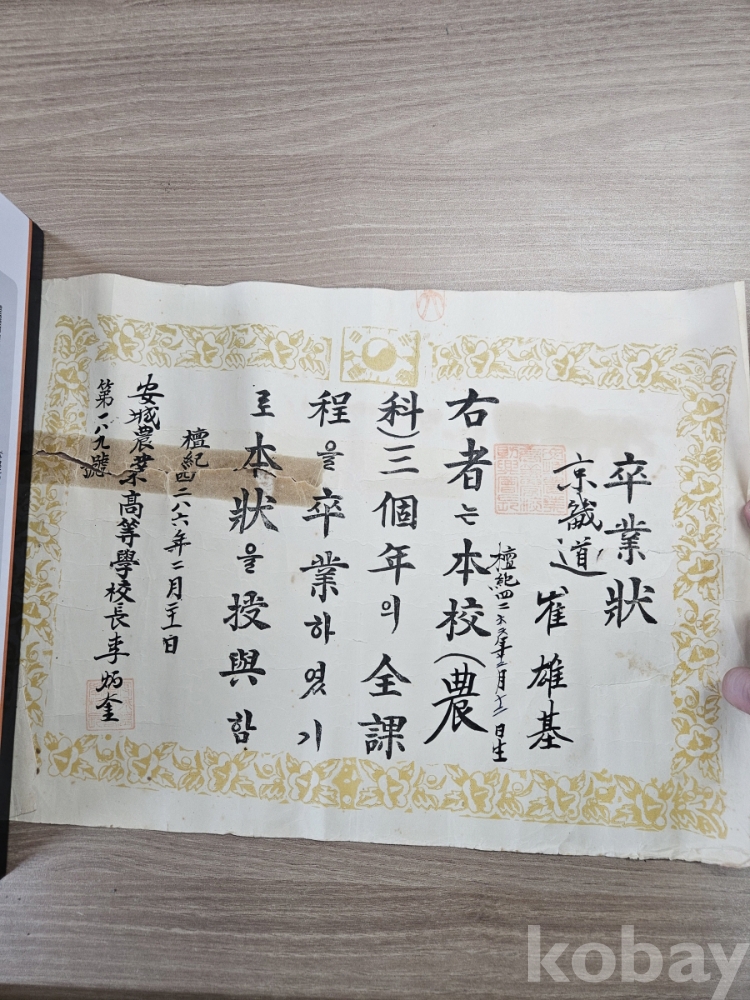 卒業狀
京畿道
崔雄基
檀紀四二六六年十二月十二日生
右者는本校(農
科)三個年의全課
程을卒業하였기
로本狀을授與함
檀紀四二八六年二月二十日
安城農業高等學校長李炳奎
第一八九號
kobay